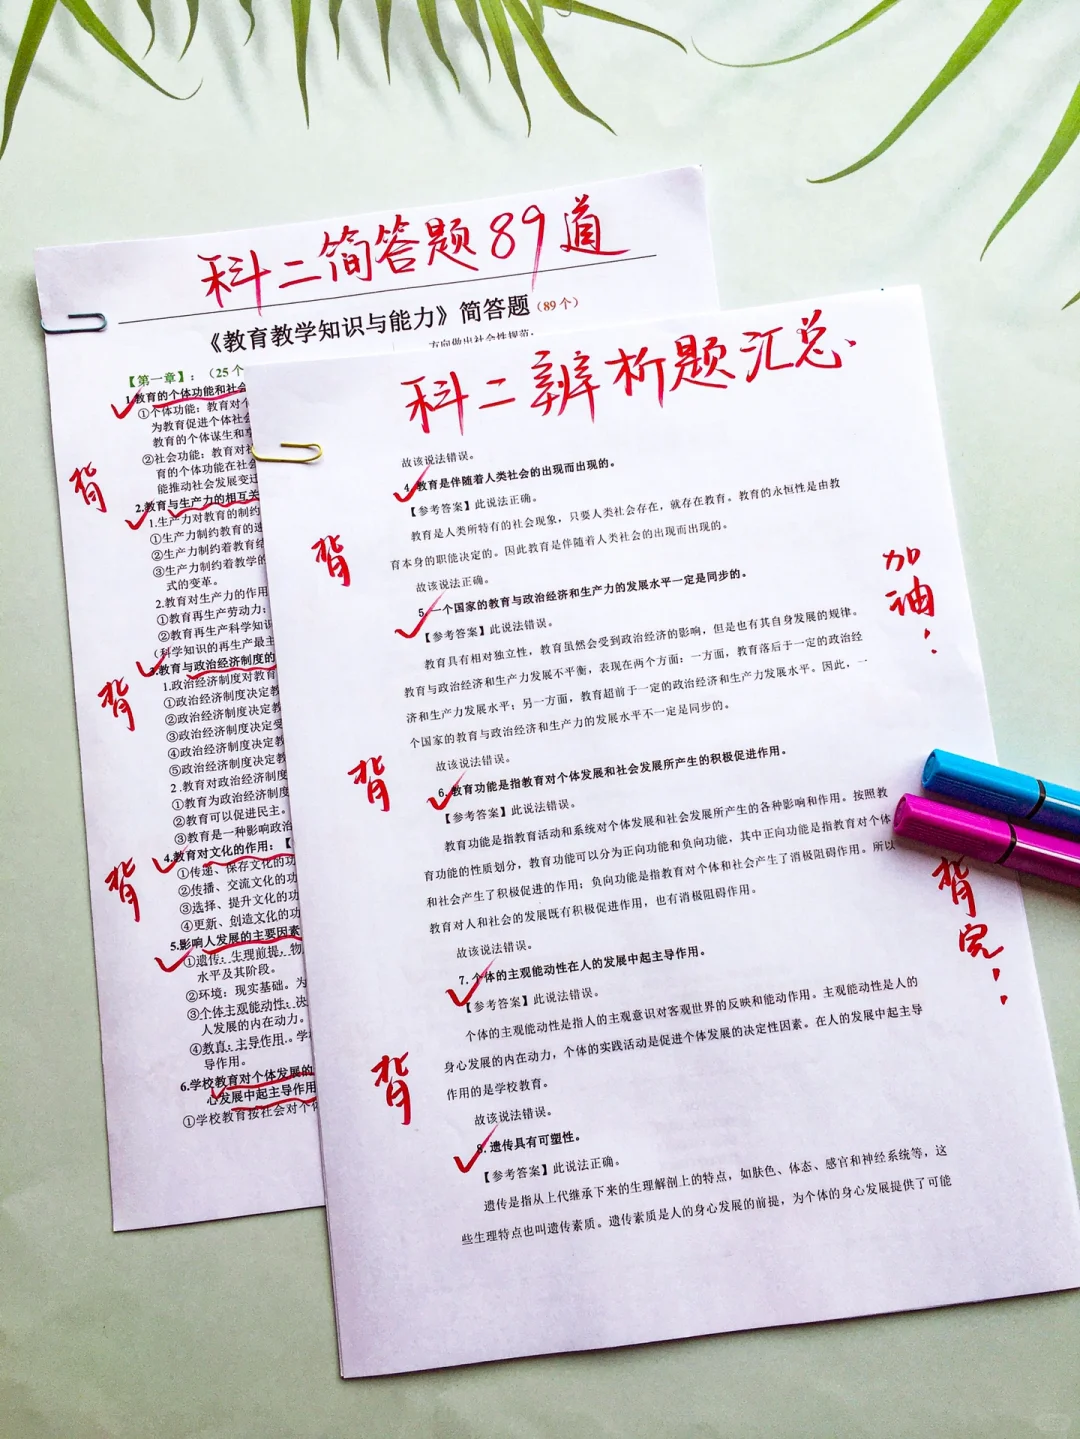 科二简答题89道
《教育教学知识与能力》简答题（89个）
方向做出社会性规范.
【第一章】：（25个
1.教育的个体功能和社会
①个体功能：教育对个
为教育促进个体社会
教育的个体谋生和享
②社会功能：教育对社
育的个体功能在社会
能推动社会发展变迁
背
2.教育与生产力的相互关
1.生产力对教育的制约
①生产力制约教育的速
②生产力制约着教育结
③生产力制约着教学的
式的变革。
2.教育对生产力的作用
①教育再生产劳动力；
②教育再生产科学知识
（科学知识的再生产最主
3.教育与政治经济制度的
背
1.政治经济制度对教育
①政治经济制度决定教
②政治经济制度决定教
③政治经济制度决定受
④政治经济制度决定教
⑤政治经济制度决定教
2.教育对政治经济制度
①教育为政治经济制度
②教育可以促进民主。
③教育是一种影响政治
4.教育对文化的作用：【
背
①传递、保存文化的功
②传播、交流文化的功
③选择、提升文化的功
④更新、创造文化的功
5.影响人发展的主要因素
①遗传：生理前提，物
水平及其阶段。
②环境：现实基础。为
③个体主观能动性：决
人发展的内在动力。
④教育：主导作用。学校
导作用。
6.学校教育对个体发展的
心发展中起主导作用
①学校教育按社会对个体
科二辨析题汇总
故该说法错误。
4.教育是伴随着人类社会的出现而出现的。
【参考答案】此说法正确。
教育是人类所特有的社会现象，只要人类社会存在，就存在教育。教育的永恒性是由教
背
育本身的职能决定的。因此教育是伴随着人类社会的出现而出现的。
故该说法正确。
5.一个国家的教育与政治经济和生产力的发展水平一定是同步的。
加油！
【参考答案】此说法错误。
教育具有相对独立性，教育虽然会受到政治经济的影响，但是也有其自身发展的规律。
教育与政治经济和生产力发展不平衡，表现在两个方面：一方面，教育落后于一定的政治经
济和生产力发展水平；另一方面，教育超前于一定的政治经济和生产力发展水平。因此，一
个国家的教育与政治经济和生产力的发展水平不一定是同步的。
故该说法错误。
背
6.教育功能是指教育对个体发展和社会发展所产生的积极促进作用。
【参考答案】此说法错误。
教育功能是指教育活动和系统对个体发展和社会发展所产生的各种影响和作用。按照教
育功能的性质划分，教育功能可以分为正向功能和负向功能，其中正向功能是指教育对个体
和社会产生了积极促进的作用；负向功能是指教育对个体和社会产生了消极阻碍作用。所以
教育对人和社会的发展既有积极促进作用，也有消极阻碍作用。
背完！
故该说法错误。
7.个体的主观能动性在人的发展中起主导作用。
【参考答案】此说法错误。
个体的主观能动性是指人的主观意识对客观世界的反映和能动作用。主观能动性是人的
身心发展的内在动力，个体的实践活动是促进个体发展的决定性因素。在人的发展中起主导
作用的是学校教育。
背
故该说法错误。
8.遗传具有可塑性。
【参考答案】此说法正确。
遗传是指从上代继承下来的生理解剖上的特点，如肤色、体态、感官和神经系统等，这
些生理特点也叫遗传素质。遗传素质是人的身心发展的前提，为个体的身心发展提供了可能